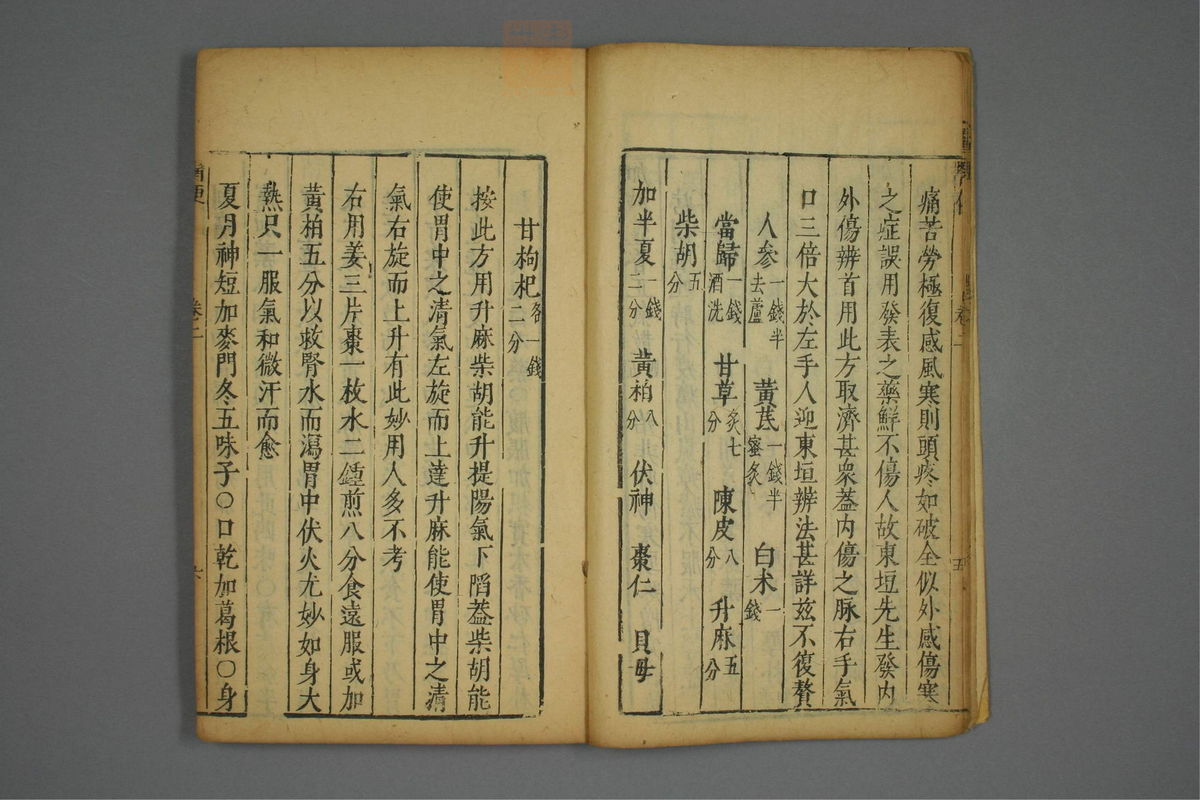 痛苦勞極復感風寒則頭疼如破全似外感傷寒
之症誤用發表之藥鮮不傷人故東垣先生發內
外傷辨首用此方取濟甚眾蓋內傷之脉右手氣
口三倍大於左手人迎東垣辨法甚詳玆不復贅
人参一錢半去蘆 黃芪一錢半蜜炙 白朮一錢
當歸一錢酒洗 甘草炙七分 陳皮八分 升麻五分
柴胡五分
加半夏一錢二分 黃柏八分 伏神 棗仁 貝母
甘枸杞各一錢二分
按此方用升麻柴胡能升提陽氣下陷蓋柴胡能
使胃中之清氣左旋而上達升麻能使胃中之清
氣右旋而上升有此妙用人多不考
右用姜三片棗一枚水二鍾煎八分食遠服或加
黃柏五分以救腎水而瀉胃中伏火尤妙如身大
熱只一服氣和微汗而愈
夏月神短加麥門冬五味子〇口乾加葛根〇身
卷二
五
卷二
六